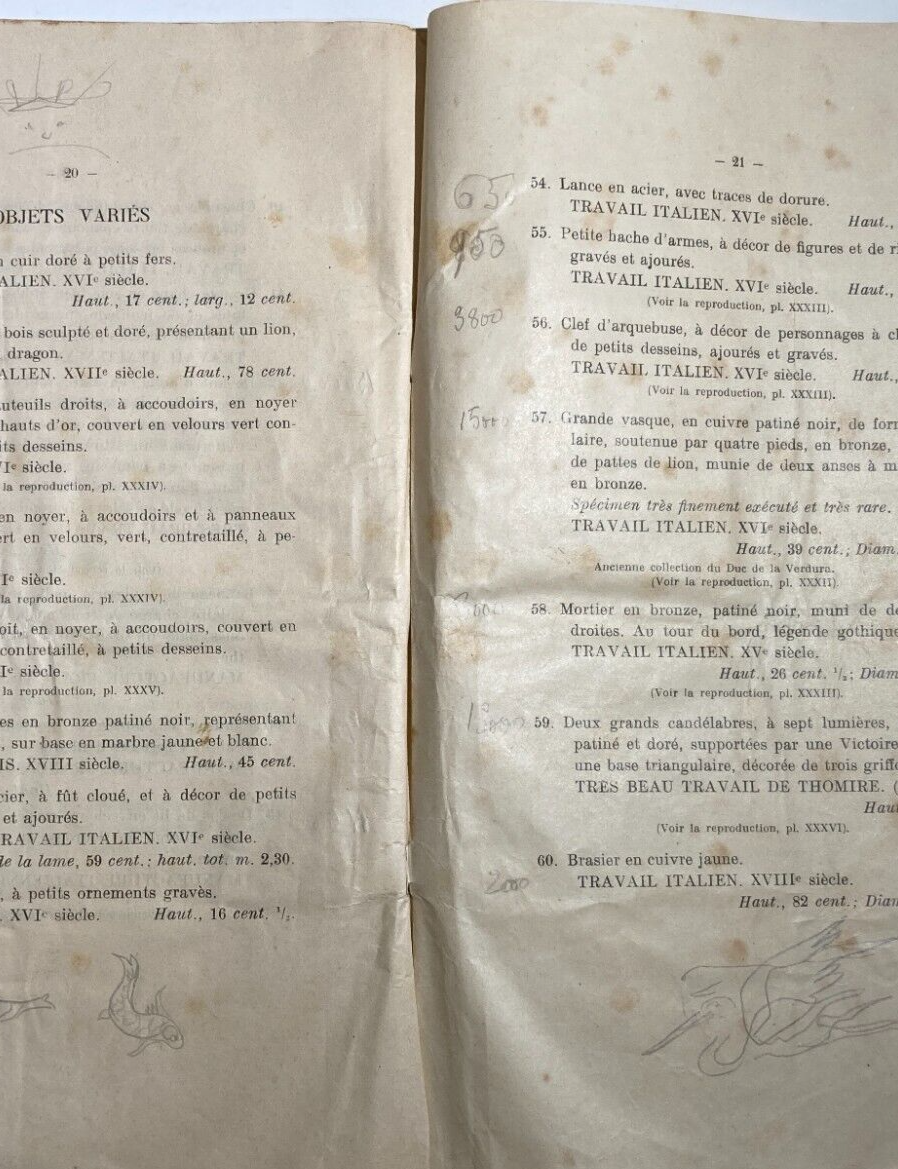 — 20 —
OBJETS VARIÉS
cuir doré à petits fers.
ALIEN. XVIe siècle.
Haut., 17 cent.; larg., 12 cent.
bois sculpté et doré, présentant un lion,
dragon.
ALIEN. XVIIe siècle. Haut., 78 cent.
uteuils droits, à accoudoirs, en noyer
hauts d'or, couvert en velours vert con-
its desseins.
Ie siècle.
la reproduction, pl. XXXIV).
en noyer, à accoudoirs et à panneaux
ert en velours, vert, contretaillé, à pe-
Ie siècle.
la reproduction, pl. XXXIV).
oit, en noyer, à accoudoirs, couvert en
contretaillé, à petits desseins.
Ie siècle.
la reproduction, pl. XXXV).
es en bronze patiné noir, représentant
, sur base en marbre jaune et blanc.
IS. XVIII siècle. Haut., 45 cent.
cier, à fût cloué, et à décor de petits
et ajourés.
RAVAIL ITALIEN. XVIe siècle.
de la lame, 59 cent.: haut. tot. m. 2,30.
, à petits ornements gravès.
. XVIe siècle. Haut., 16 cent. 1/2.
— 21 —
65
54. Lance en acier, avec traces de dorure.
TRAVAIL ITALIEN. XVIe siècle. Haut.,
950
55. Petite hache d'armes, à décor de figures et de ri
gravés et ajourés.
TRAVAIL ITALIEN. XVIe siècle. Haut.,
(Voir la reproduction, pl. XXXIII).
3800
56. Clef d'arquebuse, à décor de personnages à ch
de petits desseins, ajourés et gravés.
TRAVAIL ITALIEN. XVIe siècle. Haut.,
(Voir la reproduction, pl. XXXIII).
1500
57. Grande vasque, en cuivre patiné noir, de form
laire, soutenue par quatre pieds, en bronze,
de pattes de lion, munie de deux anses à m
en bronze.
Spécimen très finement exécuté et très rare.
TRAVAIL ITALIEN. XVIe siècle.
Haut., 39 cent.; Diam.
Ancienne collection du Duc de la Verdura.
(Voir la reproduction, pl. XXXII).
58. Mortier en bronze, patiné noir, muni de de
droites. Au tour du bord, légende gothique
TRAVAIL ITALIEN. XVe siècle.
Haut., 26 cent. 1/2; Diam
(Voir la reproduction, pl. XXXIII).
59. Deux grands candélabres, à sept lumières,
patiné et doré, supportées par une Victoire
une base triangulaire, décorée de trois griffo
TRÈS BEAU TRAVAIL DE THOMIRE. (
Haut
(Voir la reproduction, pl. XXXVI).
2000
60. Brasier en cuivre jaune.
TRAVAIL ITALIEN. XVIIIe siècle.
Haut., 82 cent.; Diam